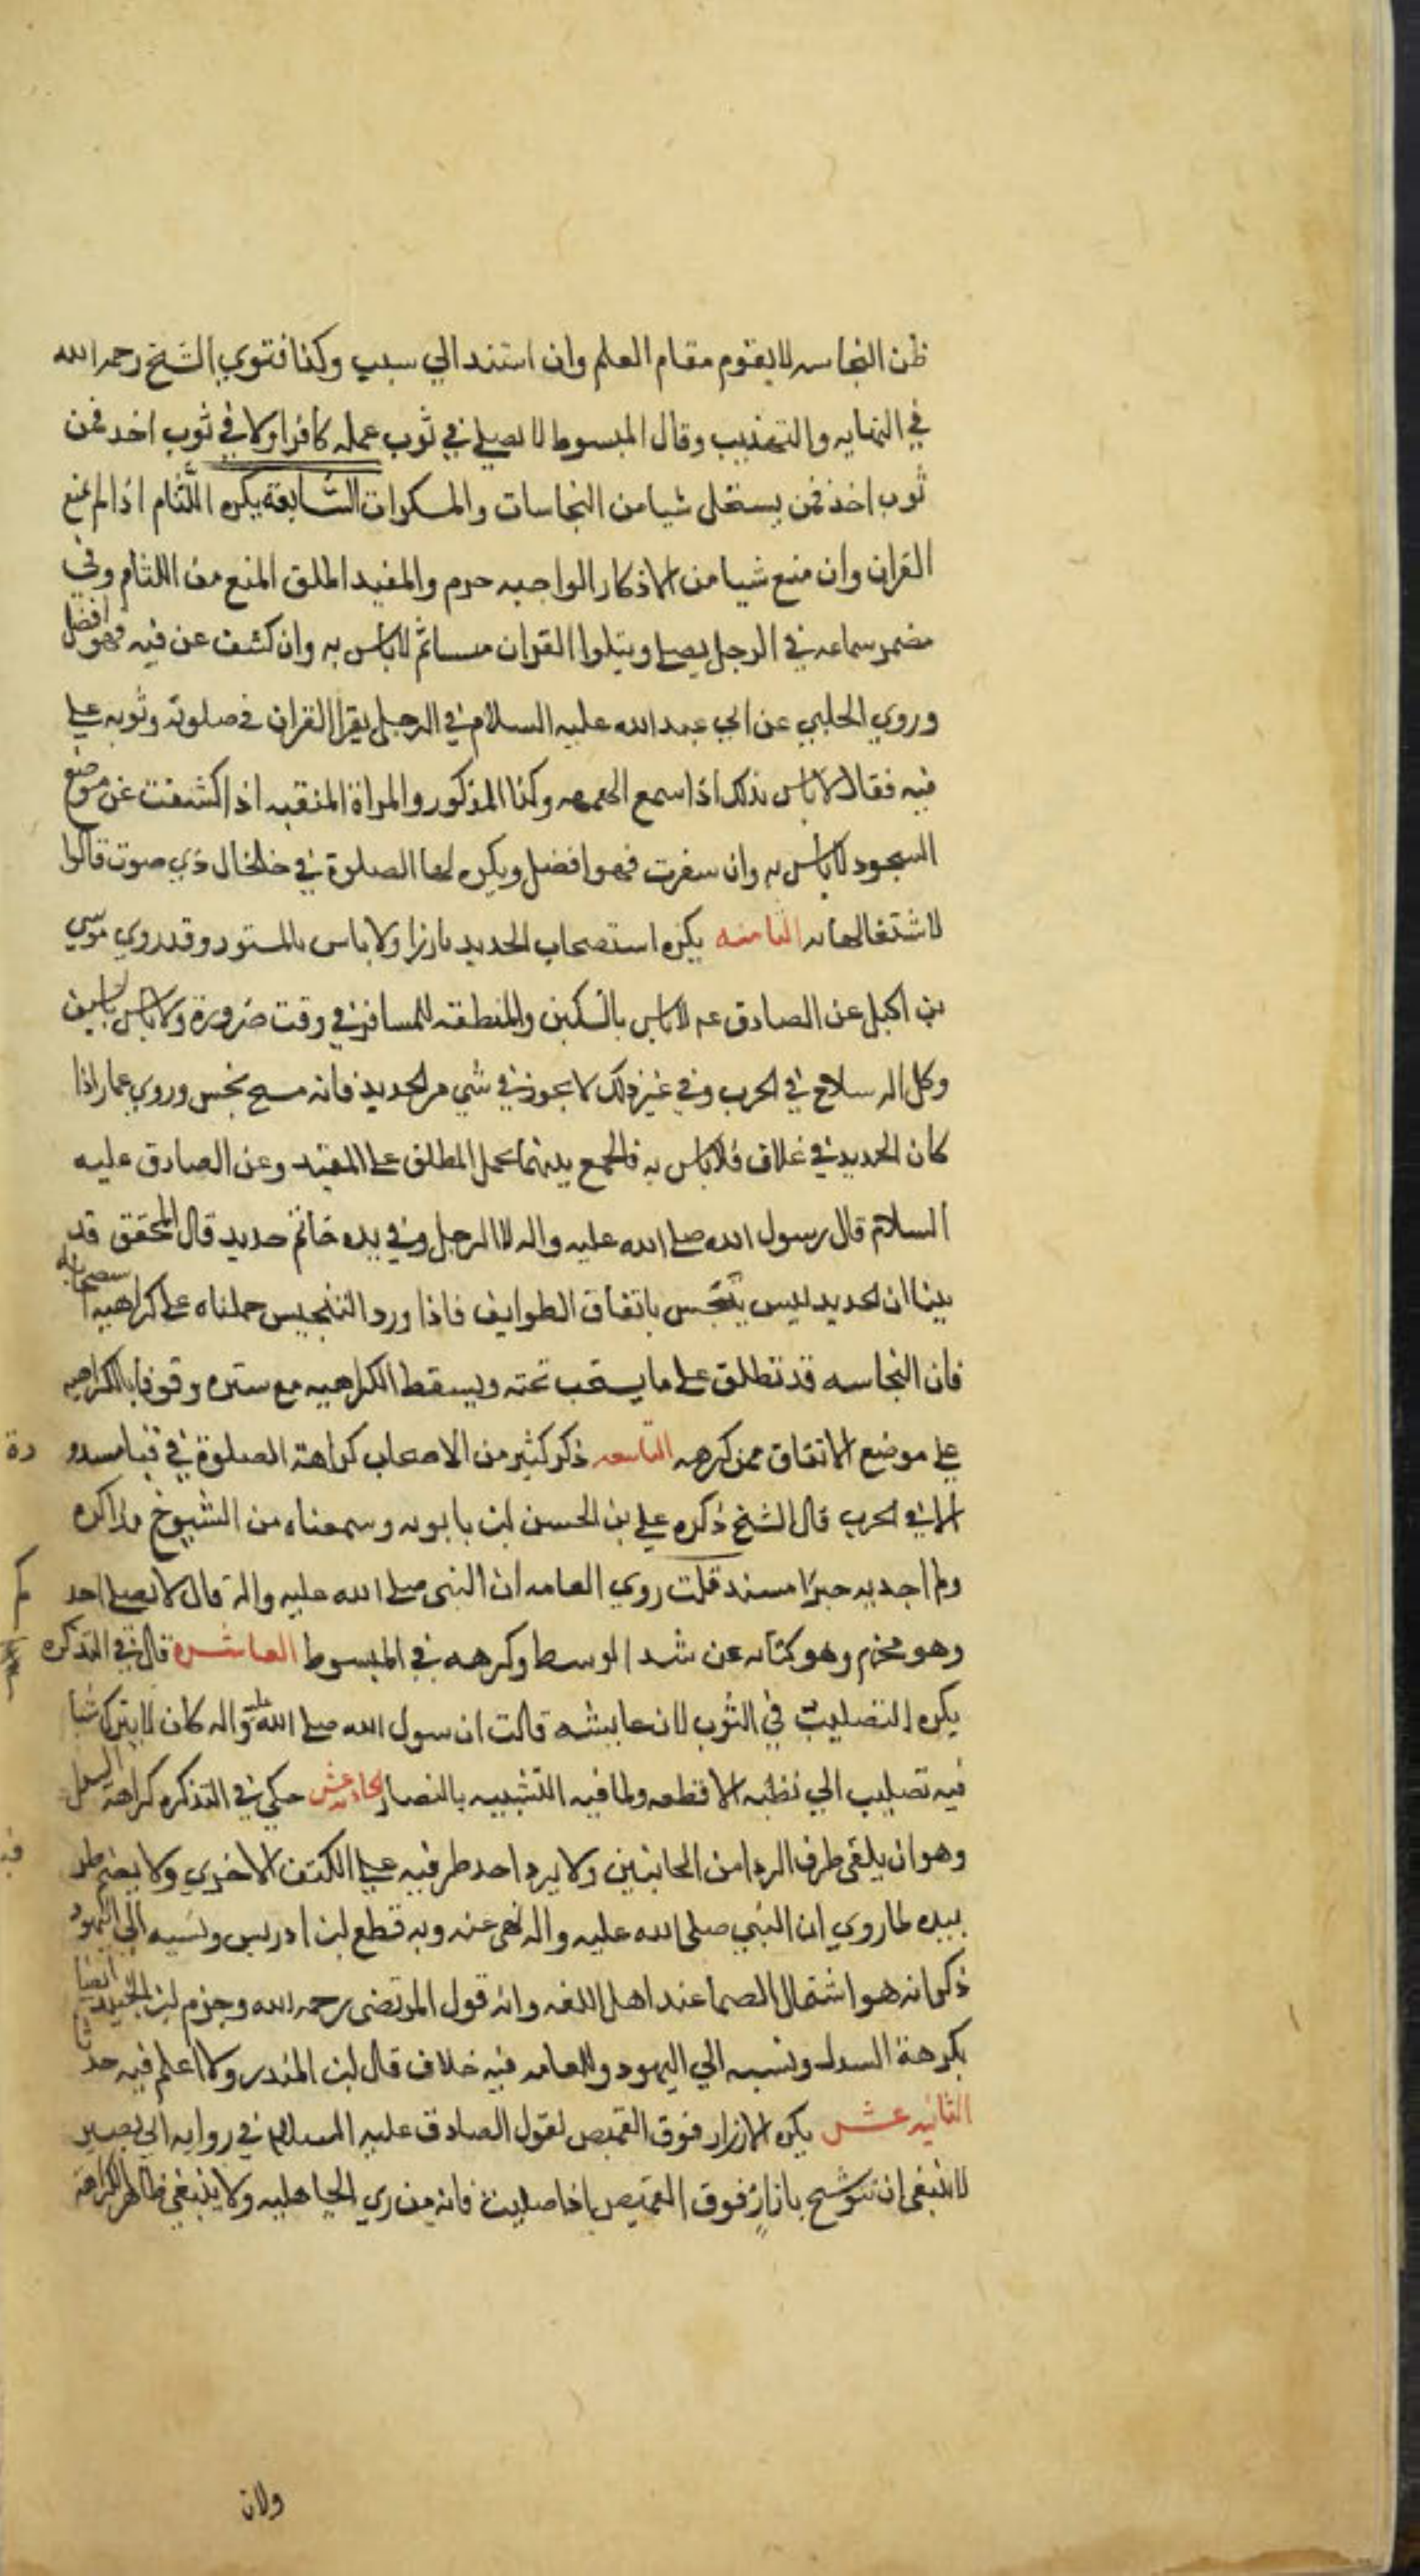 ظن النجاسه لا يقوم مقام العلم وان استند الي سبب وكذا فتوي الشيخ رحمه الله
في النهايه والتهذيب وقال المبسوط لا يصلي في ثوب عمله كافر او لا في ثوب اخذ ممن
ثوب اخذ ممن يستحل شيا من النجاسات والمسكرات السابعة يكره اللثام اذا لم يمنع
القران وان منع شيا من الاذكار الواجبه حرم والمفيد اطلق المنع من اللثام وفي
مضمر سماعه في الرجل يصلي ويتلوا القران متلثم لا باس به وان كشف عن فيه فهو افضل
وروي الحلبي عن ابي عبد الله عليه السلام في الرجل يقرا القران في صلوته وثوبه علي
فيه فقال لا باس بذلك اذا سمع الهمهمه وكذا المذكور والمراة المنقبه اذا كشفت عن موضع
السجود لا باس به وان سفرت فهو افضل ويكره لها الصلوة في خلخال ذي صوت قالوا
لاشتغالها به الثامنه يكره استصحاب الحديد بارزا ولا باس بالمستور وقد روي موسي
بن اكيل عن الصادق عم لا باس بالسكين والمنطقه للمسافر في وقت ضرورة ولا باس بالسيف
وكل اله سلاح في الحرب وفي غير ذلك لا يجوز في شي من الحديد فانه مسح نجس وروي عمار اذا
كان الحديد في غلاف فلا باس به فالجمع بينهما بحمل المطلق علي المقيد وعن الصادق عليه
السلام قال رسول الله صلي الله عليه واله لا الرجل وفي يده خاتم حديد قال المحقق قد
بينا ان الحديد ليس بنجس باتفاق الطوايف فاذا ورد التنجيس حملناه علي كراهيه استصحابه
فان النجاسه قد تطلق علي ما يستحب تجنبه ويسقط الكراهيه مع ستره وقوفا بالكراهيه
علي موضع الاتفاق ممن كرهه التاسعه ذكر كثير من الاصحاب كراهة الصلوة في قبا مسدود
الا في الحرب قال الشيخ ذكره علي بن الحسين بن بابويه وسمعناه من الشيوخ مذاكره
ولم اجد به خبرا مسندا قلت روي العامه ان النبي صلي الله عليه واله قال لا يصلي احد
وهو محزم وهو كنايه عن شد الوسط وكرهه في المبسوط العاشره قال في التذكره
يكره التصليب في الثوب لان عايشه قالت ان رسول الله صلي الله عليه واله كان لا يترك شيا
فيه تصليب الا قطعه ولما فيه التشبيه بالنصار الحاديه عشر حكي في التذكره كراهة السدل
وهو ان يلقي طرف الردا من الجانبين ولا يرد احد طرفيه علي الكتف الاخري ولا يضم طر
بيده لما روي ان النبي صلي الله عليه واله نهي عنه وبه قطع بن ادريس ونسبه الي اليهود
ذكر انه هو اشتمال الصما عند اهل اللغه وانه قول المرتضي رحمه الله وجزم بن الجنيد ايضا
بكرهة السدل ونسبه الي اليهود وللعامه فيه خلاف قال بن المنذر ولا اعلم فيه حديثا
الثانيه عشر يكره الازار فوق القميص لقول الصادق عليه السلام في روايه ابي بصير
لا ينبغي ان تتوشح بازار فوق القميص اذا صليت فانه من زي الجاهليه ولا ينبغي ظاهر الكراهة
ولان